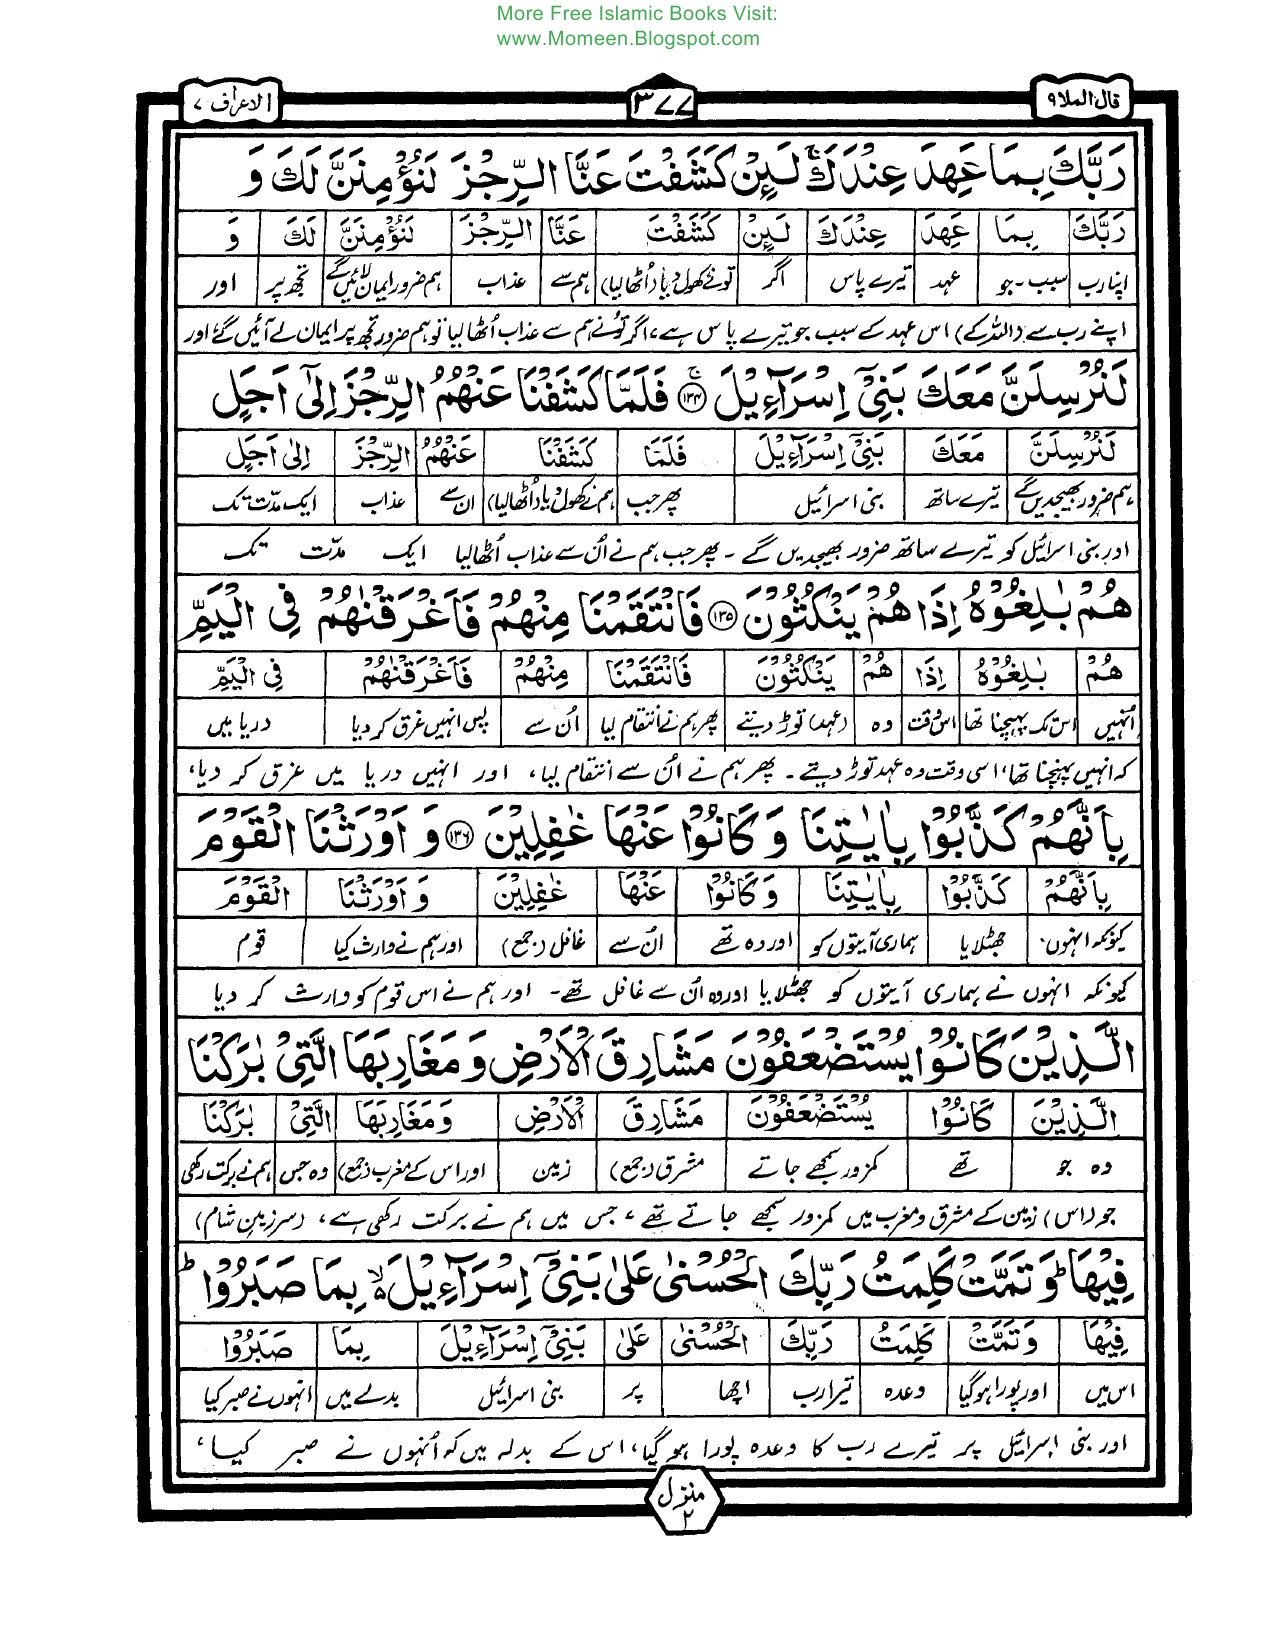 More Free Islamic Books Visit:
www.Momeen.Blogspot.com
قال الملا ٩
٣٧٧
الاعراف ٧
رَبَّكَ بِمَا عَهِدَ عِنْدَكَ ۚ لَىِٕنْ كَشَفْتَ عَنَّا الرِّجْزَ لَنُؤْمِنَنَّ لَكَ وَ
رَبَّكَ بِمَا عَهِدَ عِنْدَكَ لَىِٕنْ كَشَفْتَ عَنَّا الرِّجْزَ لَنُؤْمِنَنَّ لَكَ وَ
اپنا رب سبب۔جو عہد تیرے پاس اگر تونے کھول دیا (اُٹھالیا) ہم سے عذاب ہم ضرور ایمان لائیں گے تجھ پر اور
اپنے رب سے (اللہ کے) اس عہد کے سبب جو تیرے پاس ہے، اگر تونے ہم سے عذاب اُٹھالیا تو ہم ضرور تجھ پر ایمان لے آئیں گے اور
لَنُرْسِلَنَّ مَعَكَ بَنِيْٓ اِسْرَآءِيْلَ ۚ ۝١٣٤ فَلَمَّا كَشَفْنَا عَنْهُمُ الرِّجْزَ اِلٰٓى اَجَلٍ
لَنُرْسِلَنَّ مَعَكَ بَنِيْٓ اِسْرَآءِيْلَ فَلَمَّا كَشَفْنَا عَنْهُمُ الرِّجْزَ اِلٰٓى اَجَلٍ
ہم ضرور بھیجدیں گے تیرے ساتھ بنی اسرائیل پھر جب ہم نے کھول دیا (اُٹھالیا) ان سے عذاب ایک مدّت تک
اور بنی اسرائیل کو تیرے ساتھ ضرور بھیجدیں گے ۔ پھر جب ہم نے اُن سے عذاب اُٹھالیا ایک مدّت تک
هُمْ بٰلِغُوْهُ اِذَا هُمْ يَنْكُثُوْنَ ۝١٣٥ فَانْتَقَمْنَا مِنْهُمْ فَاَغْرَقْنٰهُمْ فِي الْيَمِّ
هُمْ بٰلِغُوْهُ اِذَا هُمْ يَنْكُثُوْنَ فَانْتَقَمْنَا مِنْهُمْ فَاَغْرَقْنٰهُمْ فِي الْيَمِّ
اُنہیں اس تک پہنچنا تھا اس وقت وہ (عہد) توڑ دیتے پھر ہم نے انتقام لیا اُن سے پس انہیں غرق کر دیا دریا میں
کہ انہیں پہنچنا تھا، اسی وقت وہ عہد توڑ دیتے ۔ پھر ہم نے اُن سے انتقام لیا، اور انہیں دریا میں غرق کر دیا،
بِاَنَّهُمْ كَذَّبُوْا بِاٰيٰتِنَا وَكَانُوْا عَنْهَا غٰفِلِيْنَ ۝١٣٦ وَاَوْرَثْنَا الْقَوْمَ
بِاَنَّهُمْ كَذَّبُوْا بِاٰيٰتِنَا وَكَانُوْا عَنْهَا غٰفِلِيْنَ وَاَوْرَثْنَا الْقَوْمَ
کیونکہ انہوں۔ جھٹلایا ہماری آیتوں کو اور وہ تھے ان سے غافل (جمع) اور ہم نے وارث کیا قوم
کیونکہ انہوں نے ہماری آیتوں کو جھٹلایا اور وہ اُن سے غافل تھے۔ اور ہم نے اس قوم کو وارث کر دیا
الَّذِيْنَ كَانُوْا يُسْتَضْعَفُوْنَ مَشَارِقَ الْاَرْضِ وَمَغَارِبَهَا الَّتِيْ بٰرَكْنَا
الَّذِيْنَ كَانُوْا يُسْتَضْعَفُوْنَ مَشَارِقَ الْاَرْضِ وَمَغَارِبَهَا الَّتِيْ بٰرَكْنَا
وہ جو تھے کمزور سمجھے جاتے مشرق (جمع) زمین اور اس کے مغرب (جمع) وہ جس ہم نے برکت رکھی
جو (اس) زمین کے مشرق ومغرب میں کمزور سمجھے جاتے تھے، جس میں ہم نے برکت رکھی ہے، (سرزمینِ شام)
فِيْهَا ۭ وَتَمَّتْ كَلِمَتُ رَبِّكَ الْحُسْنٰى عَلٰي بَنِيْٓ اِسْرَآءِيْلَ ۙ بِمَا صَبَرُوْا ۭ
فِيْهَا وَتَمَّتْ كَلِمَتُ رَبِّكَ الْحُسْنٰى عَلٰي بَنِيْٓ اِسْرَآءِيْلَ بِمَا صَبَرُوْا
اس میں اور پورا ہوگیا وعدہ تیرا رب اچھا پر بنی اسرائیل بدلے میں انہوں نے صبر کیا
اور بنی اسرائیل پر تیرے رب کا وعدہ پورا ہو گیا، اس کے بدلہ میں کہ اُنہوں نے صبر کیا،
منزل
٢